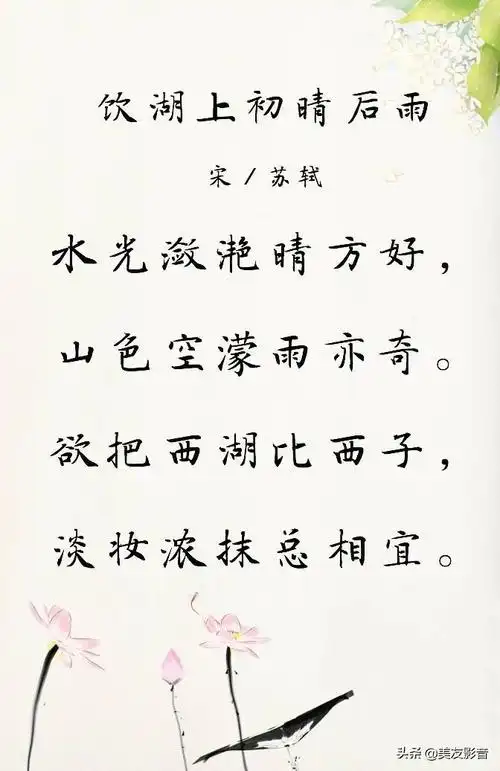 饮湖上初晴后雨
宋/苏轼
水光潋滟晴方好，
山色空濛雨亦奇。
欲把西湖比西子，
淡妆浓抹总相宜。
头条 @美友影音